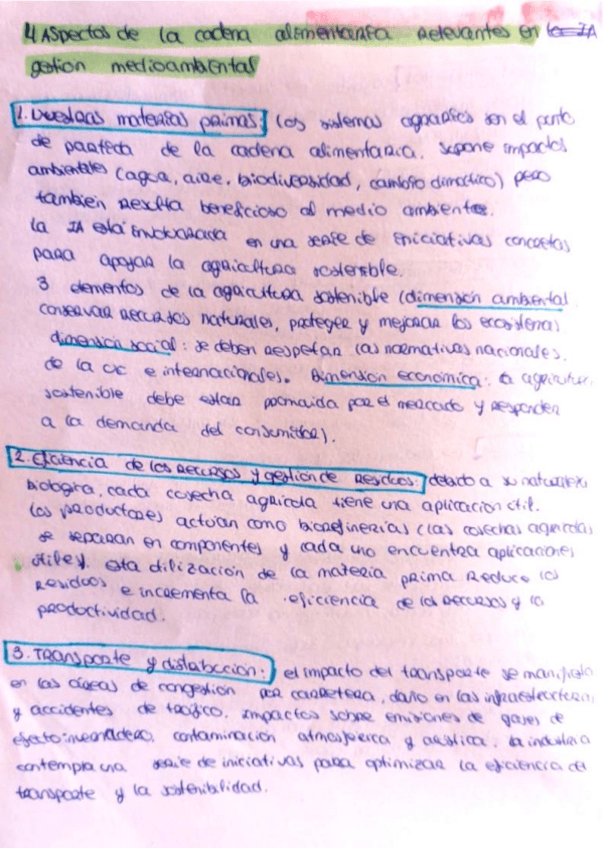 4 Aspectos de la cadena alimentaria relevantes en la IA
gestion medioambiental
1. Nuestras materias primas: los sistemas agrarios son el punto
de partida de la cadena alimentaria. supone impactos
ambientales (agua, aire, biodiversidad, cambio climático) pero
tambien resulta beneficioso al medio ambiente.
la IA está involucrada en una serie de iniciativas concretas
para apoyar la agricultura sostenible.
3 elementos de la agricultura sostenible (dimensión ambiental
conservar recursos naturales, proteger y mejorar los ecosistemas
dimensión social: se deben respetar las normativas nacionales,
de la UE e internacionales). Dimension economica: la agricultura
sostenible debe estar promovida por el mercado y responder
a la demanda del consumidor).
2. Eficiencia de los recursos y gestión de residuos: debido a su naturaleza
biologica, cada cosecha agrícola tiene una aplicacion util.
los productores actúan como biorefinerias (las cosechas agricolas
se separan en componentes y cada uno encuentra aplicaciones
útiles). esta utilización de la materia prima reduce los
residuos e incrementa la eficiencia de los recursos y la
productividad.
3. Transporte y distribución: el impacto del transporte se manifiesta
en las áreas de congestión por carretera, daño en las infraestructuras
y accidentes de trafico. Impactos sobre emisiones de gases de
efecto invernadero, contaminación atmosferica y acústica. la industria
contempla una serie de iniciativas para optimizar la eficiencia del
transporte y la sostenibilidad.